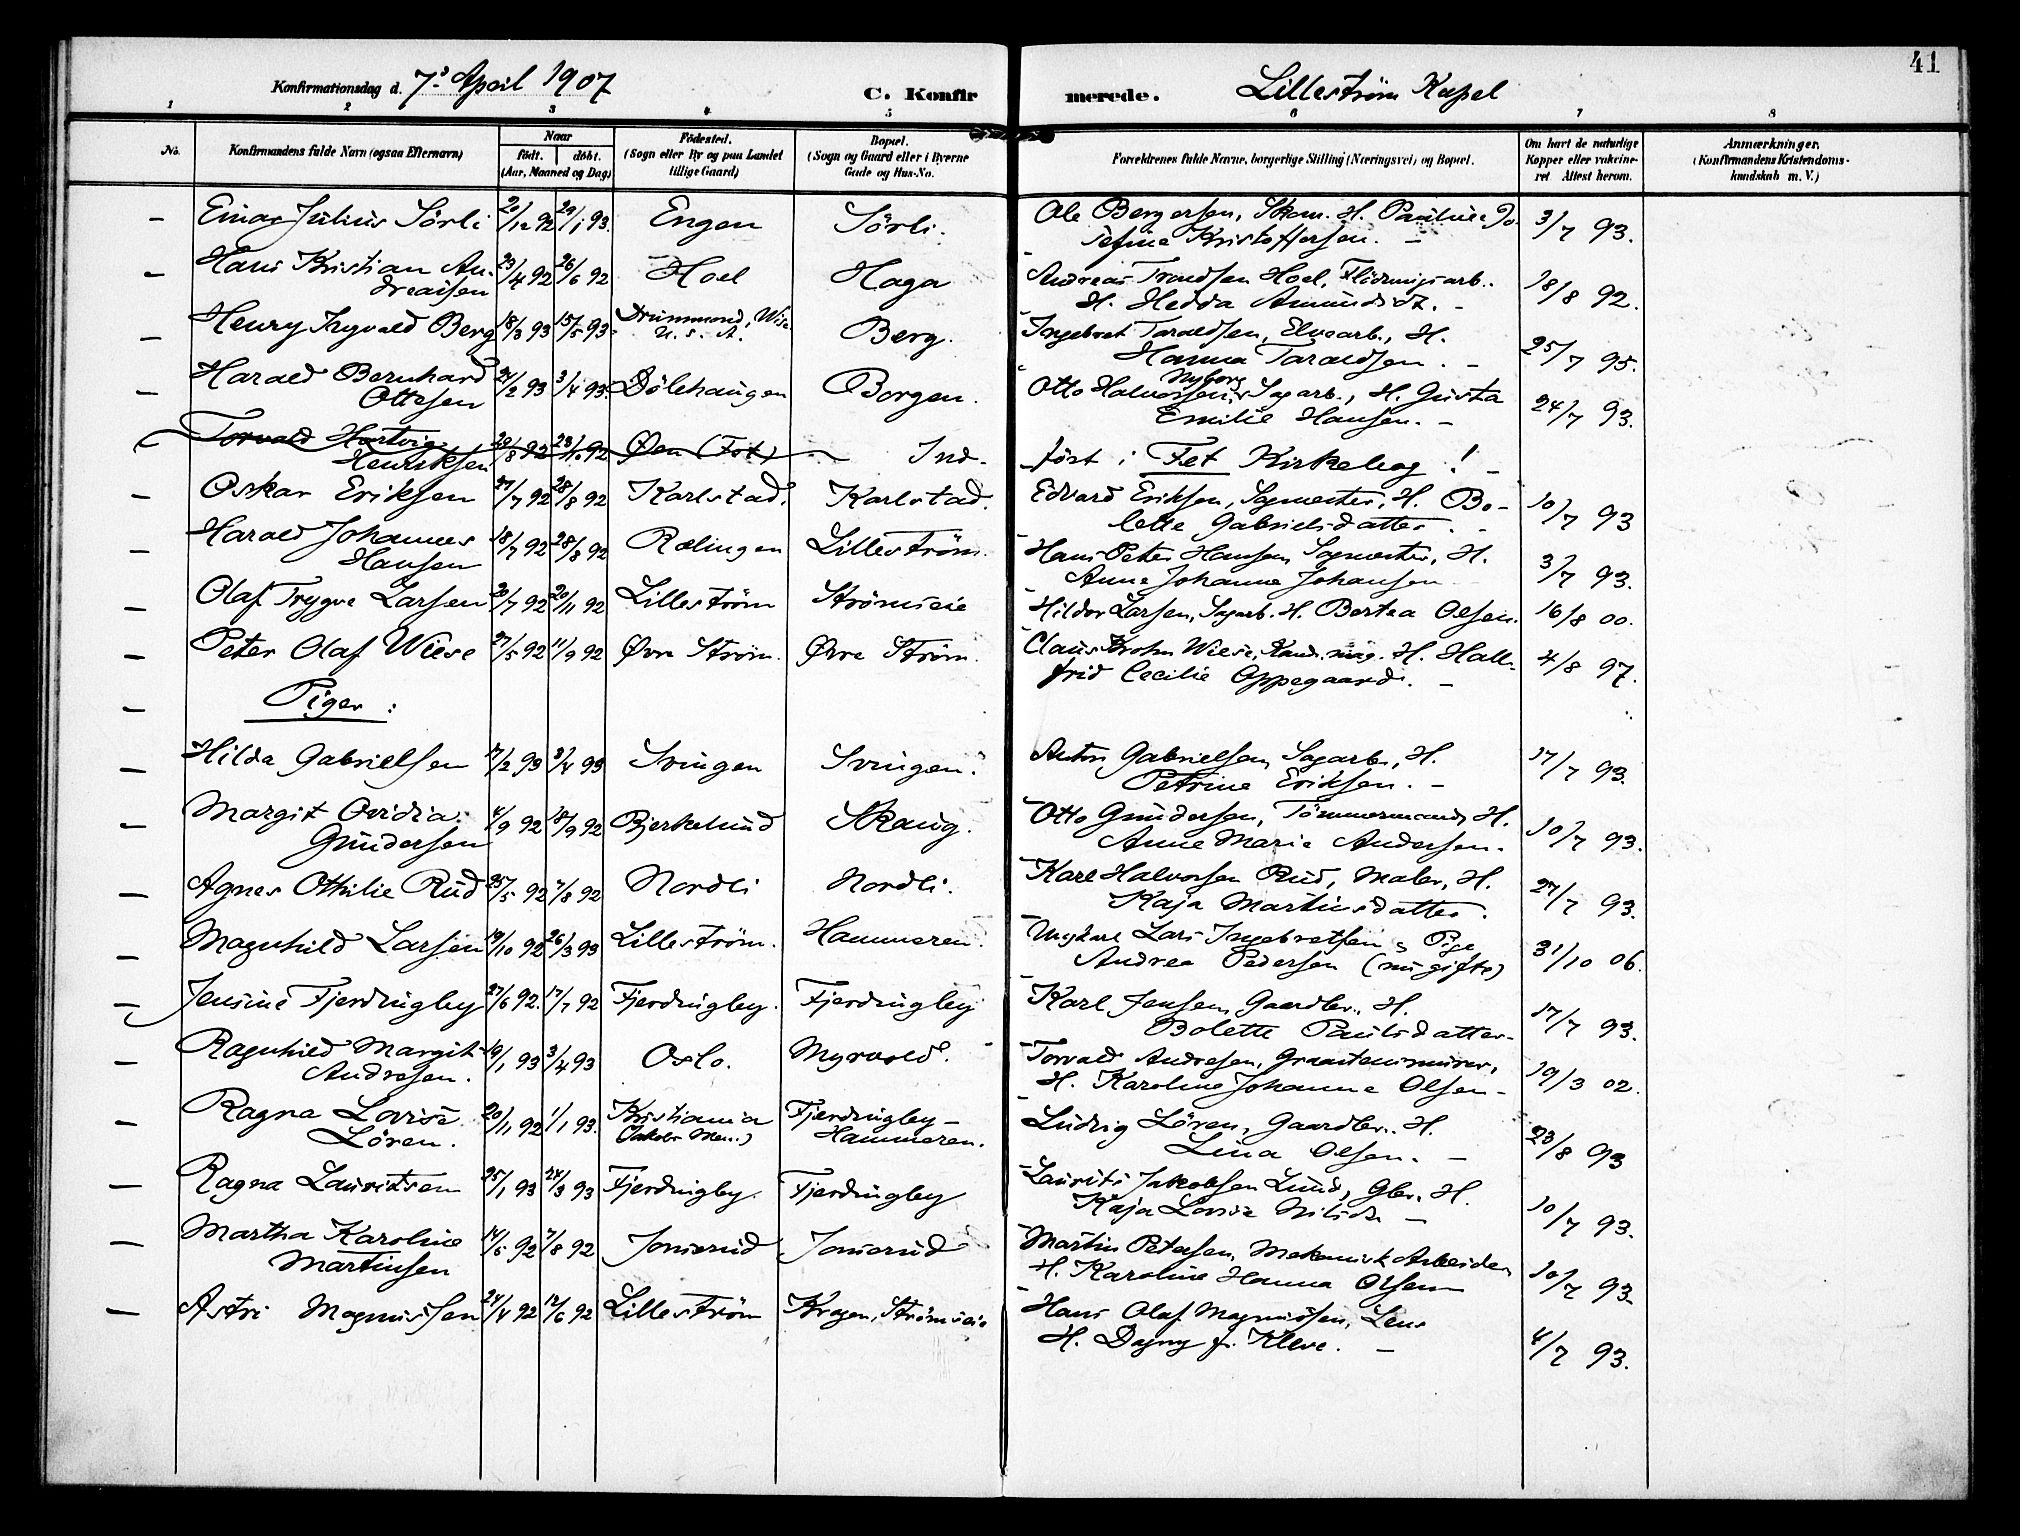 41
Konfirmationsdag d. 7de April 1907
C. Konfirmerede.
Lillestrøm Kapel
1 2 3 4 5 6 7 8
No.
Konfirmandens fulde Navn (ogsaa Efternavn)
Naar
født. døbt.
(Aar, Maaned og Dag)
Fødested.
(Sogn eller By og paa Landet
tillige Gaard)
Bopæl.
(Sogn og Gaard eller i Byerne
Gade og Hus-No.
Forældrenes fulde Navne, borgerlige Stilling (Næringsvei) og Bopæl.
Om havt de naturlige
Kopper eller vakcine-
ret. Attest herom.
Anmærkninger.
(Konfirmandens Kristendoms-
kundskab m. V.)
— Einar Julius Sörli 20/12 92 29/1 93. Engen Sörli. Ole Bergersen, Skom. H. Pauline Jo- 3/7 93.
sefine Kristoffersen. —
— Hans Kristian An- 23/4 92 26/6 92 Hoel Haga Andreas Trondsen Hoel, Flödningsarb. 18/8 92.
dreasen H. Hedda Amundsdt. —
— Henry Ingvald Berg 18/3 93 15/5 93 Drummond, Wisc. Berg. Ingebret Taraldsen, Elvearb., H. 25/7 95.
U. S. A. Hanna Taraldsen. —
— Harald Bernhard 24/2 93 3/4 93. Dölehaugen Borgen. Otto Halvorsen Nyborg, Sagarb., H. Gusta 24/7 93.
Ottesen Emilie Hansen. —
Torvald Hartvig 29/8 92 23/10 92 Øen (Fet) Ind-
Henriksen ført i Fet Kirkebog! —
— Oskar Eriksen 27/7 92 28/8 92 Karlstad. Karlstad. Edvard Eriksen, Sagmester, H. Bo- 10/7 93
lette Gabrielsdatter. —
— Harald Johannes 18/7 92 28/8 92 Rælingen Lilleström. Hans Peter Hansen, Sagmester, H. 3/7 93.
Hansen Anne Johanne Johansen
— Olaf Trygve Larsen 20/7 92 20/11 92 Lilleström Strömseie Hildor Larsen, Sagarb. H. Bertea Olsen. 16/8 00.
— Peter Olaf Wiese 27/5 92 11/9 92 Øvre Ström. Øvre Ström. Claus Krohn Wiese, Kand. mag. H. Hall- 4/8 97.
frid Cecilie Oppegaard. —
— Piger:
— Hilda Gabrielsen 17/2 93 3/4 93 Svingen Svingen. Anton Gabrielsen, Sagarb., H. 17/7 93.
Petrine Eriksen. —
— Margit Ovidia 4/9 92 18/9 92 Bjerkelund Skaug. Otto Gundersen, Tömmermand, H. 10/7 93.
Gundersen Anne Marie Andersen.
— Agnes Othilie Rud 25/5 92 7/8 92 Nordli Nordli. Karl Halvorsen Rud, Maler, H. 27/7 93.
Kaja Martinsdatter.
— Magnhild Larsen 19/10 92 26/3 93 Lilleström. Hammeren. Ungkarl Lars Ingebretsen & Pige 31/10 06.
Andrea Pedersen (nu gifte)
— Jensine Fjerdingby 27/6 92. 17/7 92 Fjerdingby. Fjerdingby Karl Jensen, Gaardbr. H. 17/7 93.
Bolette Paulsdatter.
— Ragnhild Margit 19/1 93 3/4 93 Oslo. Myrvold. Torvald Andresen, Graastensmurer, 19/3 02.
Andresen. H. Karoline Johanne Olsen —
— Ragna Lovise 20/11 92 1/1 93. Kristiania Fjerdingby- Ludvig Lören, Gaardbr. H. 23/8 93
Lören. (Jakobs Men.) Hammeren. Lina Olsen. —
— Ragna Lauritsen 25/1 93 24/3 93 Fjerdingby. Fjerdingby Laurits Jakobsen Lund, Gbr. H. 10/7 93.
Kaja Lovise Nilsdr. —
— Martha Karoline 14/5 92 7/8 92 Jonserud Jonserud Martin Petersen, Mekanisk Arbeider 10/7 93.
Martinsen H. Karoline Hanna Olsen
— Astri Magnussen 24/4 92 12/6 92 Lilleström Krogen, Strömseie Hans Olaf Magnussen, 4/7 93.
H. Dagny f. Kleve. —